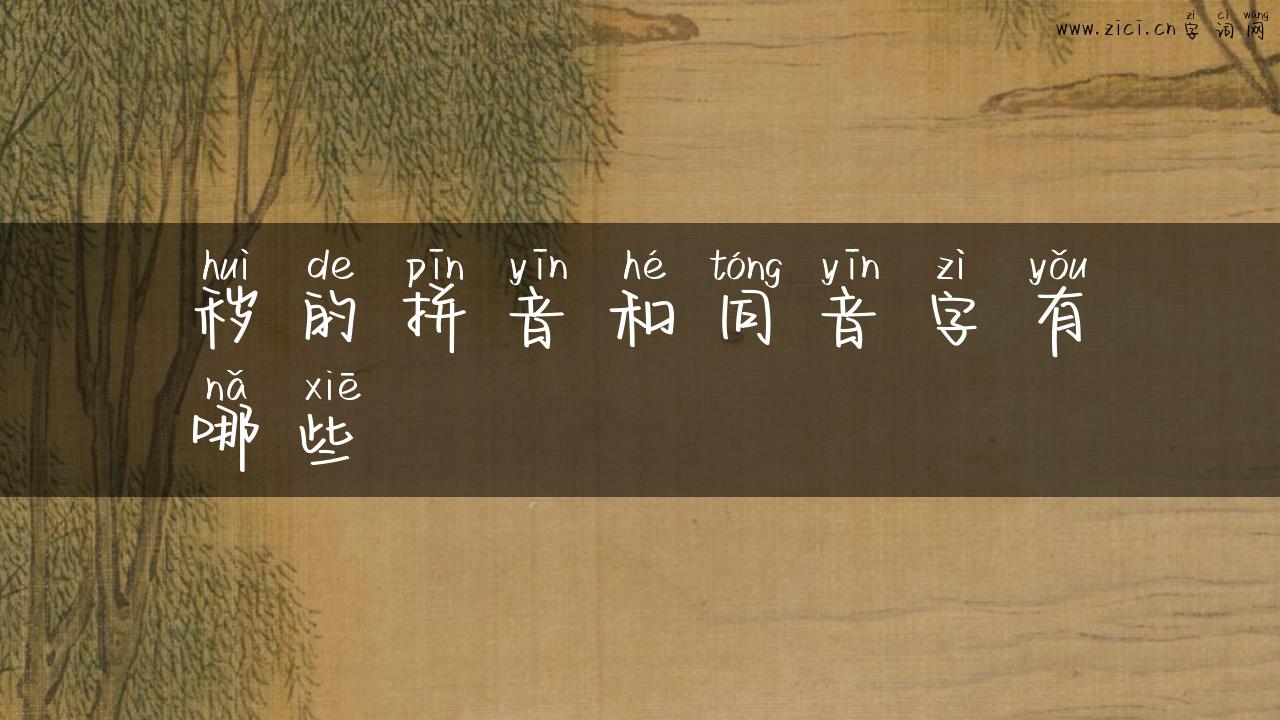 zì cí wǎng
www.zici.cn 字词网
huì de pīn yīn hé tóng yīn zì yǒu
秽的拼音和同音字有
nǎ xiē
哪些